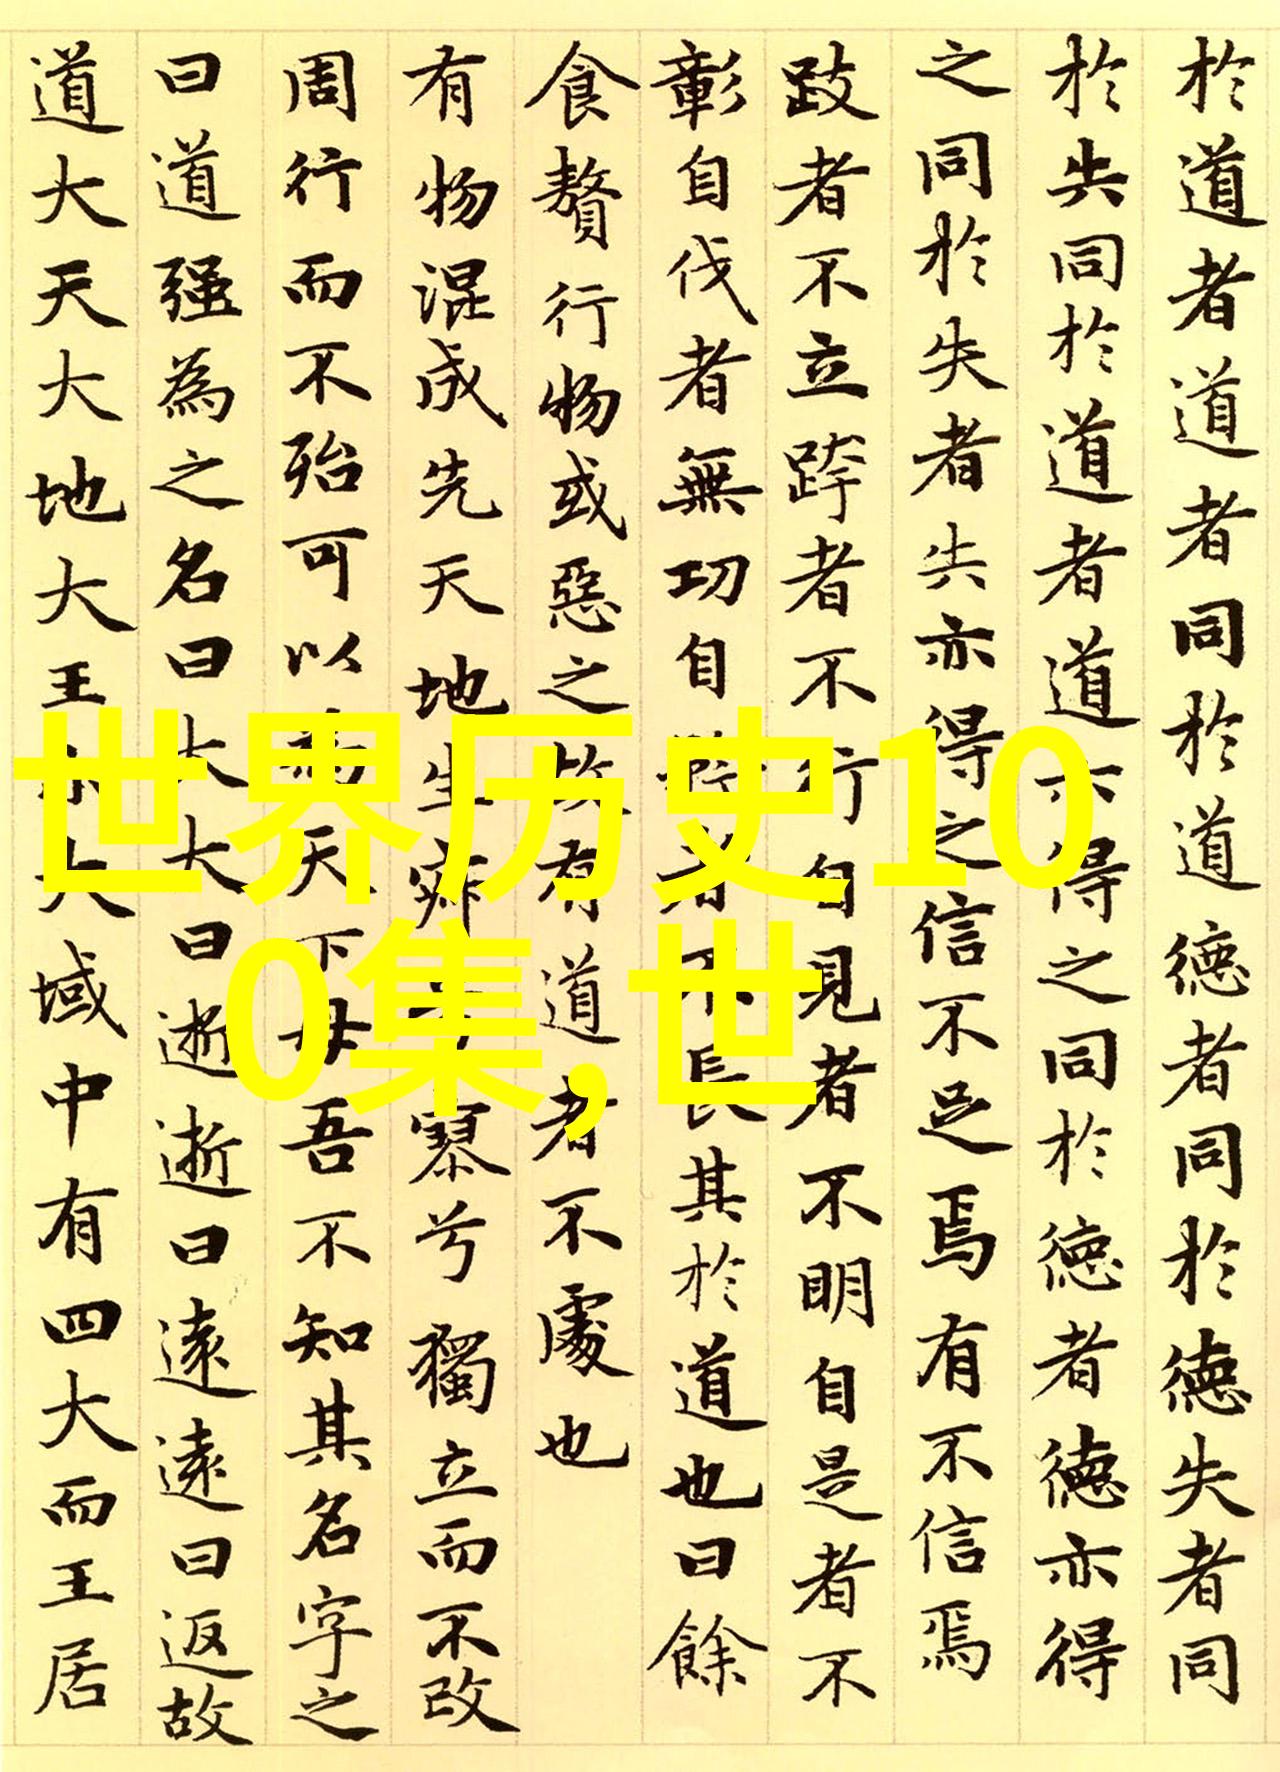 於道者道者同於道德者同於德失者同
於失同於道者道亦得之同於德者德亦得
之同於失者失亦得之信不足焉有不信焉
跂者不立跨者不行自見者不明自是者不
彰自伐者無功自矜者不長其於道也曰餘
食贅行物或惡之故有道者不處也
有物混成先天地生寂兮寥兮獨立而不改
周行而不殆可以為天下母吾不知其名字之
曰道强為之名曰大大曰逝逝曰遠遠曰返故
道大天大地大王亦大域中有四大而王居
世界历史10
0集,世